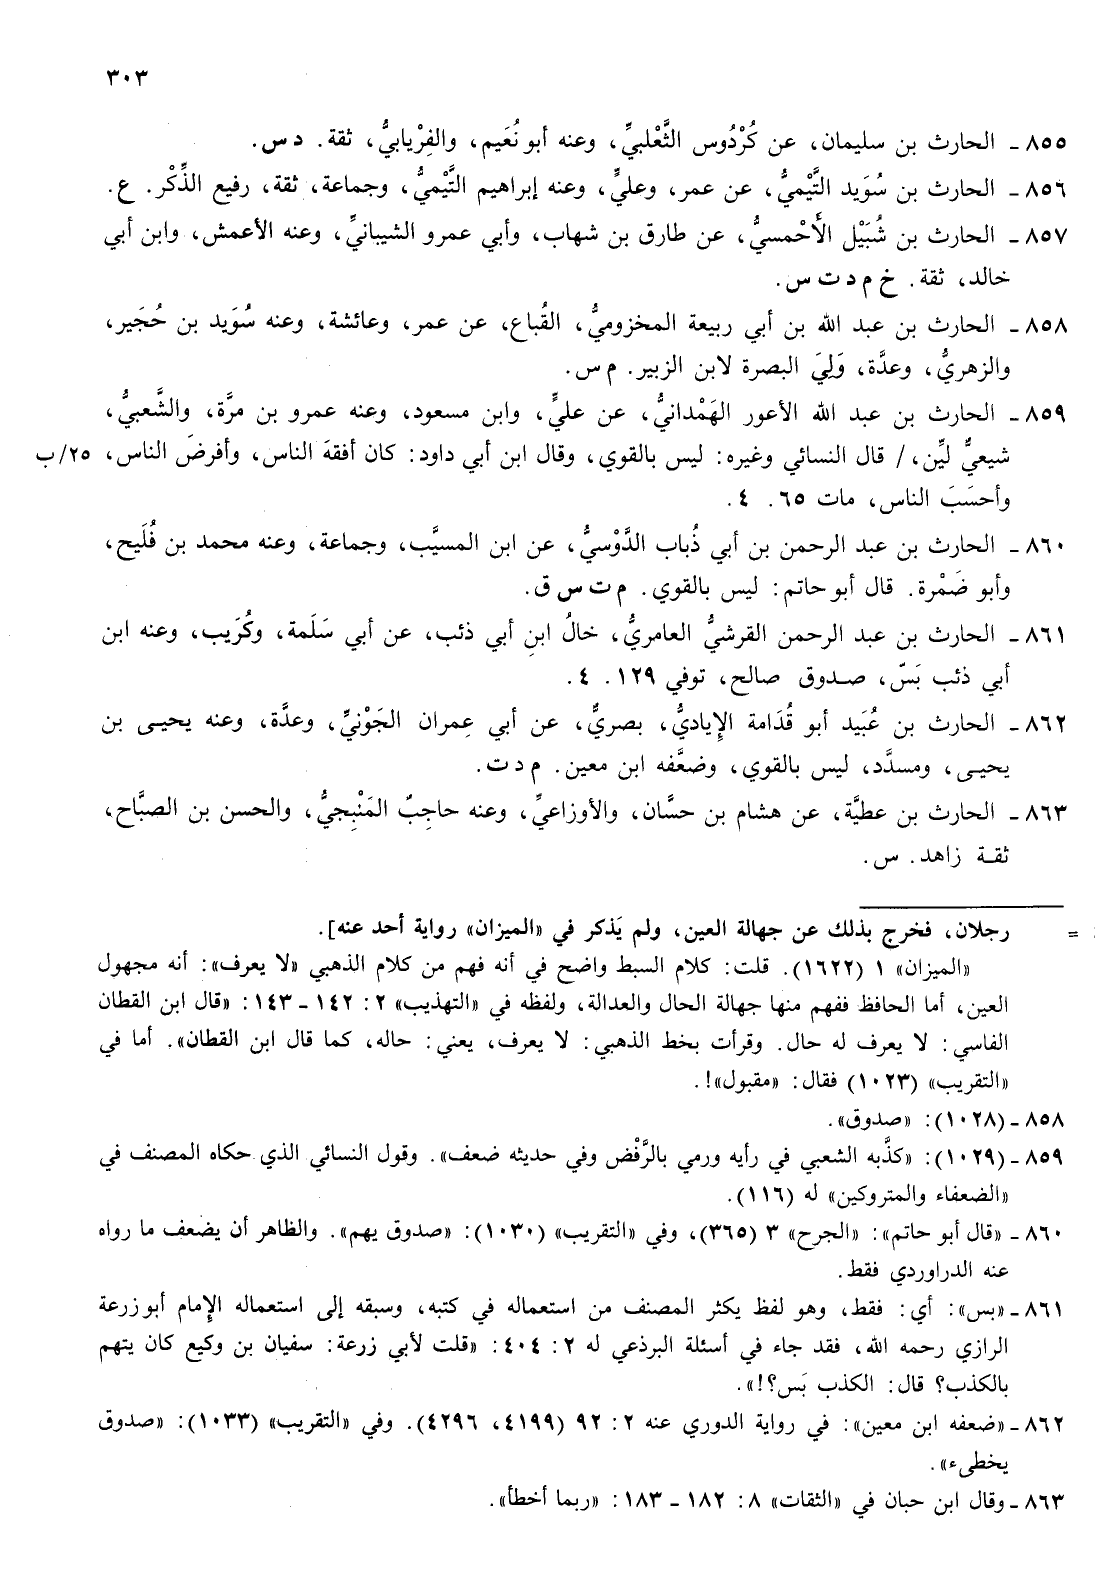 ٣٠٣
٨٥٥ ـ الحارث بن سليمان، عن كُرْدُوس الثَّعْلبيِّ، وعنه أبو نُعَيم، والفِرْيابيُّ، ثقة. د س.
٨٥٦ ـ الحارث بن سُوَيد التَّيْميُّ، عن عمر، وعليٍّ، وعنه إبراهيم التَّيْميُّ، وجماعة، ثقة، رفيع الذِّكْر. ع.
٨٥٧ ـ الحارث بن شُبَيْل الأَحْمسيُّ، عن طارق بن شهاب، وأبي عمرو الشيبانيِّ، وعنه الأعمش، وابن أبي
خالد، ثقة. خ م د ت س.
٨٥٨ ـ الحارث بن عبد الله بن أبي ربيعة المخزوميُّ، القُباع، عن عمر، وعائشة، وعنه سُوَيد بن حُجَير،
والزهريُّ، وعدَّة، وَلِيَ البصرة لابن الزبير. م س.
٨٥٩ ـ الحارث بن عبد الله الأعور الهَمْدانيُّ، عن عليٍّ، وابن مسعود، وعنه عمرو بن مرَّة، والشَّعبيُّ،
شيعيٌّ ليِّن، / قال النسائي وغيره: ليس بالقوي، وقال ابن أبي داود: كان أفقهَ الناس، وأفرضَ الناس، ٢٥/ب
وأحسَبَ الناس، مات ٦٥. ٤.
٨٦٠ ـ الحارث بن عبد الرحمن بن أبي ذُباب الدَّوْسيُّ، عن ابن المسيَّب، وجماعة، وعنه محمد بن فُلَيح،
وأبو ضَمْرة. قال أبو حاتم: ليس بالقوي. م ت س ق.
٨٦١ ـ الحارث بن عبد الرحمن القرشيُّ العامريُّ، خالُ ابنِ أبي ذئب، عن أبي سَلَمة، وكُرَيب، وعنه ابن
أبي ذئب بَسّ، صـدوق صالح، توفي ١٢٩. ٤.
٨٦٢ ـ الحارث بن عُبَيد أبو قُدَامة الإِياديُّ، بصريٌّ، عن أبي عِمران الجَوْنيِّ، وعدَّة، وعنه يحيـى بن
يحيـى، ومسدَّد، ليس بالقوي، وضعَّفه ابن معين. م د ت.
٨٦٣ ـ الحارث بن عطيَّة، عن هشام بن حسَّان، والأوزاعيِّ، وعنه حاجِبٌ المَنْبِجيُّ، والحسن بن الصبَّاح،
ثقـة زاهد. س.
= رجلان، فخرج بذلك عن جهالة العين، ولم يَذكر في «الميزان» رواية أحد عنه].
«الميزان» ١ (١٦٢٢). قلت: كلام السبط واضح في أنه فهم من كلام الذهبي «لا يعرف»: أنه مجهول
العين، أما الحافظ ففهم منها جهالة الحال والعدالة، ولفظه في «التهذيب» ٢: ١٤٢ ـ ١٤٣: «قال ابن القطان
الفاسي: لا يعرف له حال. وقرأت بخط الذهبي: لا يعرف، يعني: حاله، كما قال ابن القطان». أما في
«التقريب» (١٠٢٣) فقال: «مقبول»!.
٨٥٨ ـ (١٠٢٨): «صدوق».
٨٥٩ ـ (١٠٢٩): «كذَّبه الشعبي في رأيه ورمي بالرَّفْض وفي حديثه ضعف». وقول النسائي الذي حكاه المصنف في
«الضعفاء والمتروكين» له (١١٦).
٨٦٠ ـ «قال أبو حاتم»: «الجرح» ٣ (٣٦٥)، وفي «التقريب» (١٠٣٠): «صدوق يهم». والظاهر أن يضعف ما رواه
عنه الدراوردي فقط.
٨٦١ ـ «بس»: أي: فقط، وهو لفظ يكثر المصنف من استعماله في كتبه، وسبقه إلى استعماله الإمام أبو زرعة
الرازي رحمه الله، فقد جاء في أسئلة البرذعي له ٢: ٤٠٤: «قلت لأبي زرعة: سفيان بن وكيع كان يتهم
بالكذب؟ قال: الكذب بَس؟!».
٨٦٢ ـ «ضعفه ابن معين»: في رواية الدوري عنه ٢: ٩٢ (٤١٩٩، ٤٢٩٦). وفي «التقريب» (١٠٣٣): «صدوق
يخطىء».
٨٦٣ ـ وقال ابن حبان في «الثقات» ٨: ١٨٢ ـ ١٨٣: «ربما أخطأ».